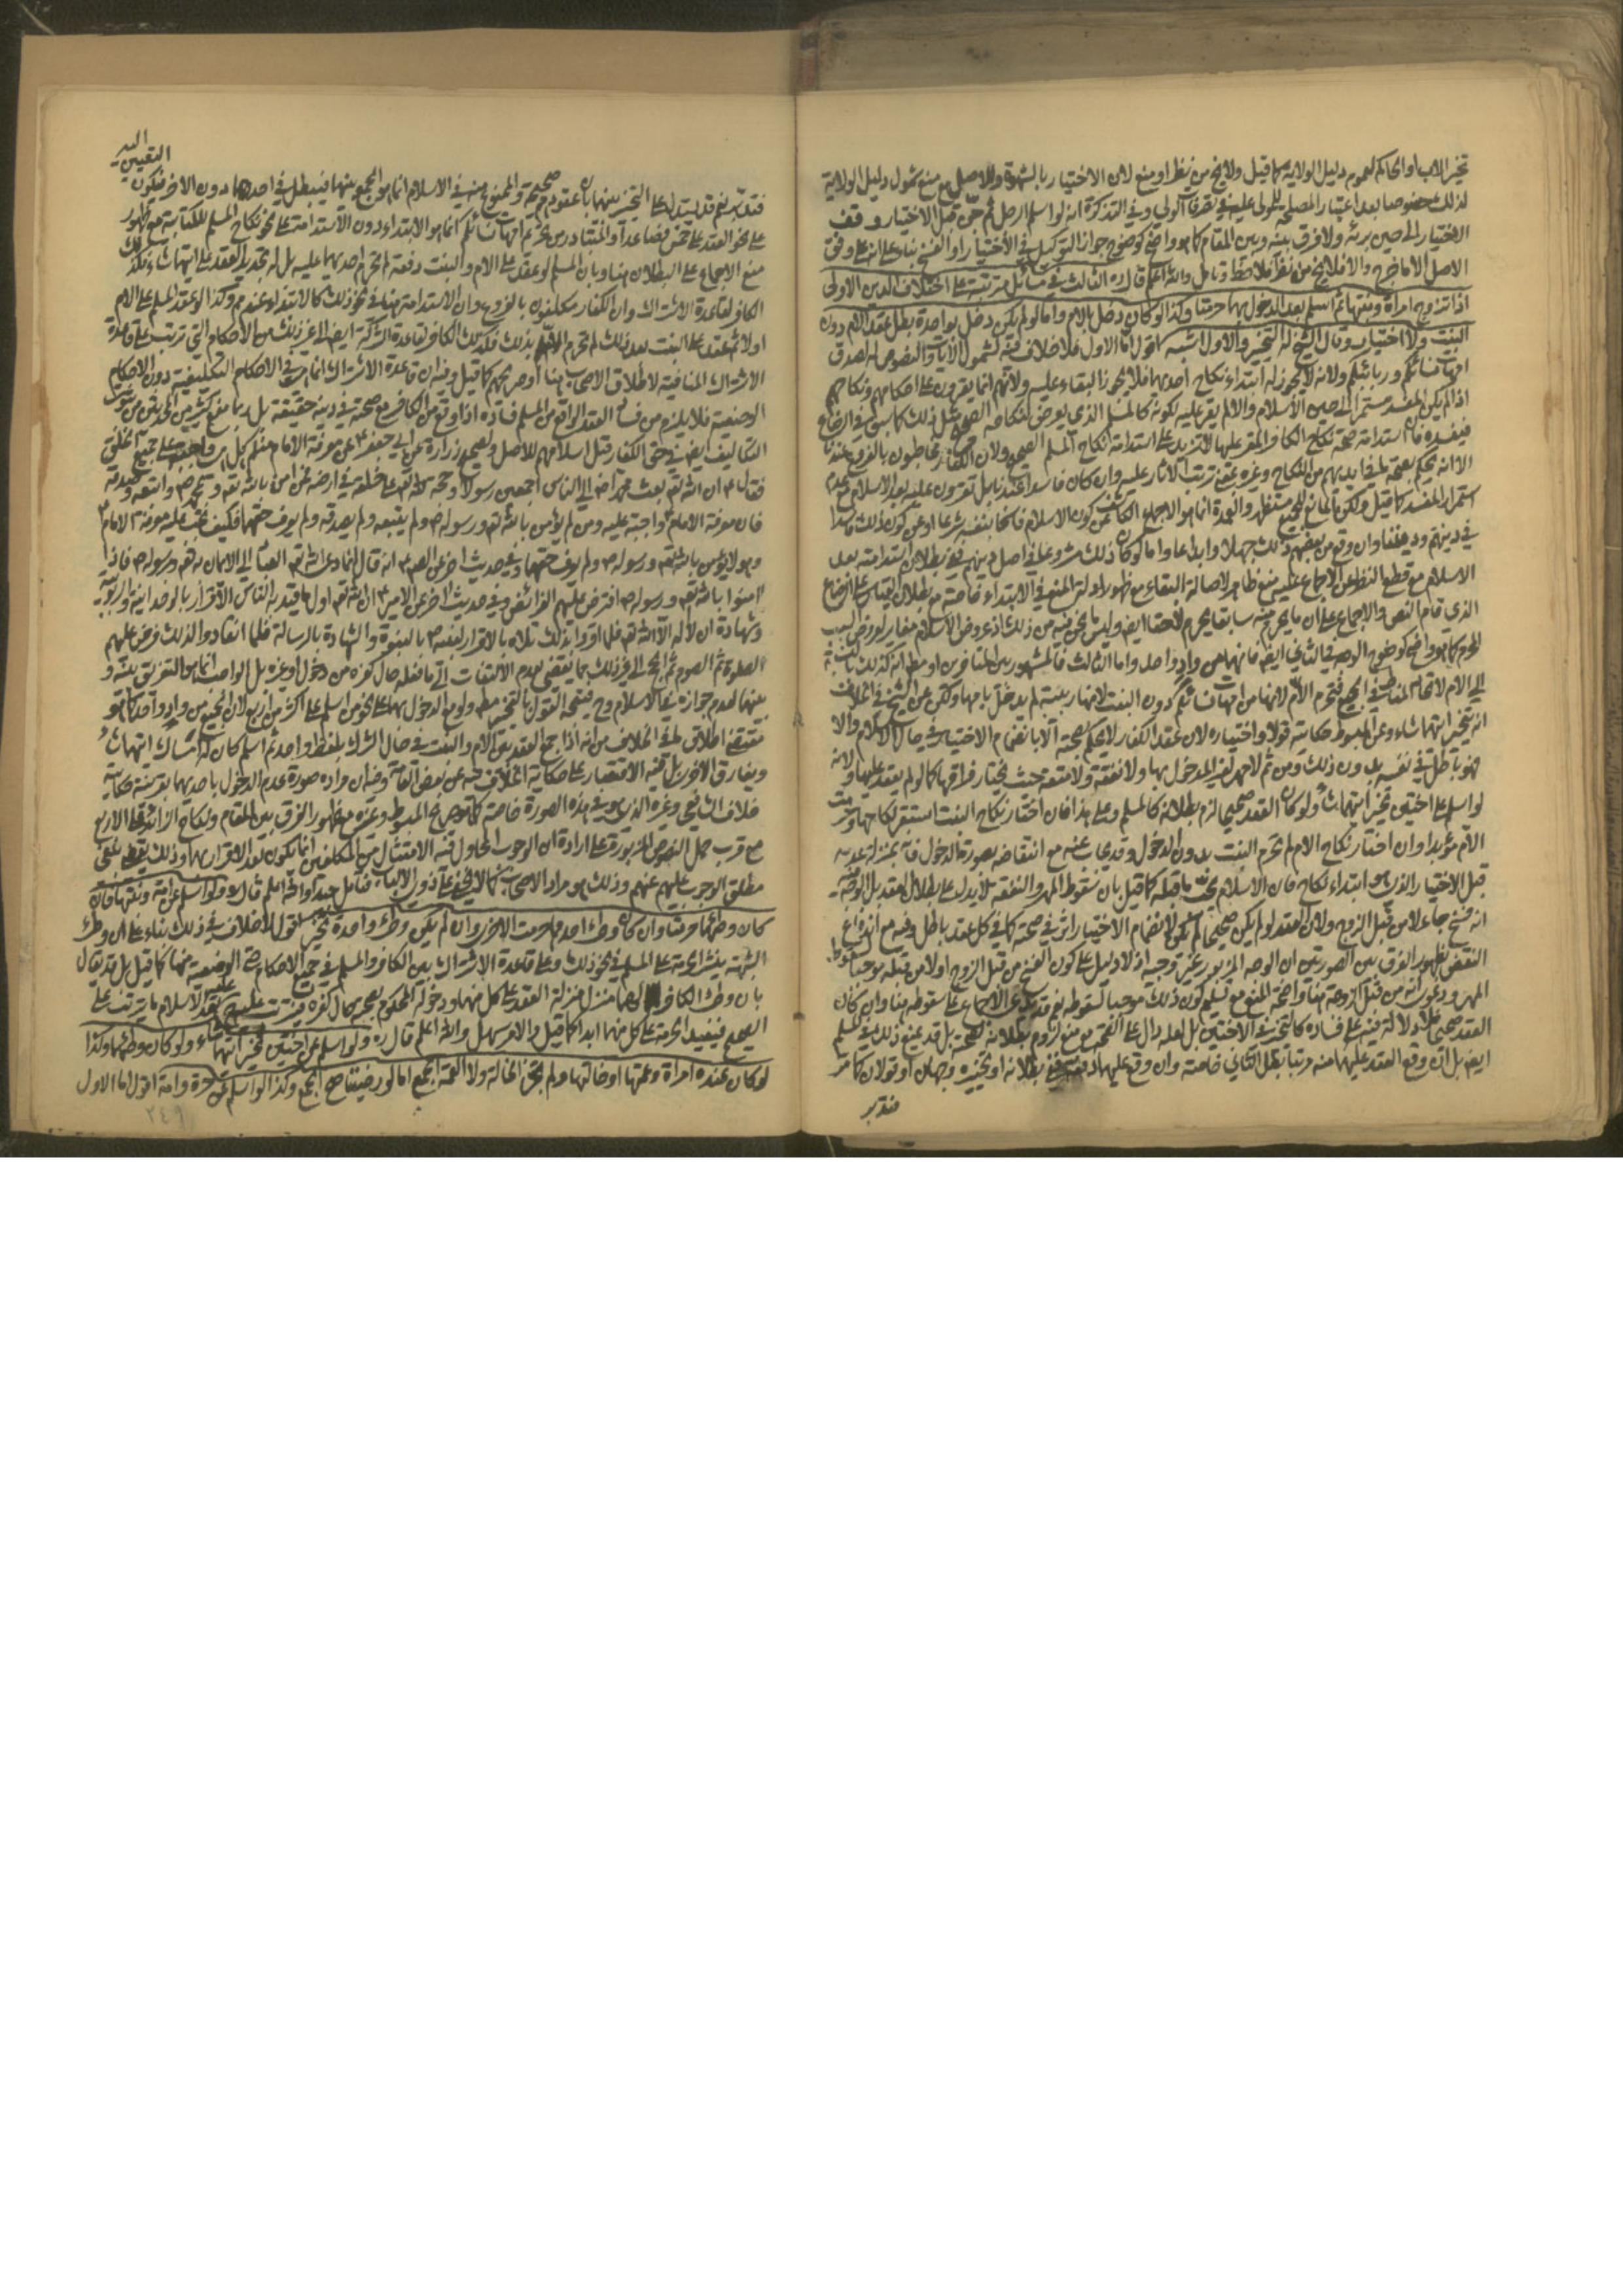 تخير الاب او الحاكم لعموم دليل الولاية كما قيل ولا يخ من نظر او منع لان الاختيار بالشهوة وللاصل مع منع شمول دليل الولاية
لذلك خصوصا بعد اعتبار المصلحة للمولى عليه في تصرفات الولي وفي التذكرة انه لو اسلم الرجل ثم جن قبل الاختيار وقف
الاختيار الى حين برئه ولا فرق بينه وبين المقام كما هو واضح كوضوح جواز التوكيل في الاختيار او الفسخ بناء على انه على وفق
الاصل الا ما خرج والا فلا يخ من نظر فلاحظ وتامل والله اعلم قال ره الثالث في مسائل مرتبة على اختلاف الدين الاولى
اذا تزوج امراة وبنتها ثم اسلم بعد الدخول بهما حرمتا وكذا لو كان دخل بالام واما لو لم يكن دخل بواحدة بطل عقد الام دون
البنت ولا اختيار وقال الشيخ له التخيير والاول اشبه اقول اما الاول فلا خلاف فيه لشمول الايات والنصوص له لصدق
امهات نسائكم وربائبكم ولانه لا يجوز له ابتداء نكاح احدهما فلا يجوز البقاء عليه ولانهم انما يقرون على احكامهم ونكاحهم
اذا لم يكن المفسد مستمرا الى حين الاسلام والا لم يقر عليه لكونه كالمسلم الذي يعرض نكاحه الصحيح مثل ذلك كما سبق في الرضاع
فيفسده فان استدامة صحة نكاح الكافر المقر عليها لا تزيد على استدامة نكاح المسلم الصحيح ولان الكفار مخاطبون بالفروع عندنا
الا انه يحكم بصحة ما في ايديهم من النكاح وغيره بمعنى ترتب الاثار عليه وان كان فاسدا عندنا بل يقرون عليه بعد الاسلام مع عدم
استمرار المفسد كما قيل ولكن
في دينهم وديننا وان وقع من بعضهم ذلك جهلا وابتداعا واما لو كان ذلك مشروعا في اصل دينهم ففي بطلان استدامته بعد
الاسلام مع قطع النظر عن الاجماع عليه منع ظاهر لاصالة البقاء مع ظهور ادلة المنع في الابتداء خاصة مع بطلان القياس على الرضاع
الذي قام النص والاجماع على ان ما يحرم منه سابقا يحرم لاحقا ايض وليس ما نحن فيه من ذلك
المحرم كما هو واضح كوضوح الوجه في الثاني ايض فانهما من واد واحد واما الثالث فالمشهور بين المتاخرين او مط انه كذلك بالنسبة
الى الام لاتحاد المناط في الجميع فتحرم الام لانها من امهات نسائكم دون البنت لانها ربيبة لم يدخل بامها ولكن عن الشيخ في الخلاف
انه يتخير ايتهما شاء وعن المبسوط حكايته قولا واختياره لان عقد الكفار لا يحكم بصحته الا بانضمام الاختيار في حال الاسلام والا
فهو باطل في نفسه بدون ذلك ومن ثم لا مهر لغير المدخول بها ولا نفقة ولا متعة حيث يختار فراقها كما لو لم يعقد عليها ولانه
لو اسلم على اختين تخير ايتهما شاء ولو كان العقد صحيحا لزم بطلانه كالمسلم وعلى هذا فان اختار نكاح البنت استقر نكاحها وحرمت
الام مؤبدا وان اختار نكاح الام لم تحرم البنت بدون الدخول وقد يجاب عنه مع انتقاضه بصورة الدخول فانه بمنزلة عدمه
قبل الاختيار الذي هو ابتداء نكاح فان الاسلام يجب ما قبله كما قيل بان سقوط المهر والنفقة لا يدل على بطلان العقد بل الوجه فيه
انه فسخ جاء لا من قبل الزوج ولان العقد لو لم يكن صحيحا لم يكن لانضمام الاختيار اثر في صحته كما في كل عقد باطل وفيه مع اندفاع
النقض بظهور الفرق بين الصورتين ان الوجه المزبور غير وجيه اذ لا دليل على كون الفسخ من قبل الزوج او لا من قبله موجبا لسقوط
المهر ودعوى انه من قبل الزوجة هنا واضحة المنع مع تسليم كون ذلك موجبا لسقوطه نعم قد يدعى الاجماع على سقوطه هنا وان كان
العقد صحيحا فلا دلالة فيه على فساده كالتخيير في الاختين بل لعله دال على الصحة مع منع لزوم بطلانه لصحته بل قد يمنع ذلك في المسلم
ايض بل ان وقع العقد عليهما منه مرتبا بطل الثاني خاصة وان وقع عليهما دفعة ففي بطلانه او تخييره وجهان او قولان كما مر
فتدبر
فتدبر نعم قد يستدل على التخيير بينهما بان عقودهم صحيحة والممنوع منه في الاسلام انما هو الجمع بينهما فيبطل في احدهما دون الاخر فيكون التعيين اليه
على نحو العقد على خمس فصاعدا والمتبادر من تحريم امهات نسائكم انما هو الابتداء دون الاستدامة على نحو نكاح المسلم للكتابية مع ظهور
منع الاجماع على البطلان هنا وبان المسلم لو عقد على الام والبنت دفعة لم تحرم احديهما عليه بل له تجديد العقد على ايتهما شاء فكذلك
الكافر لقاعدة الاشتراك وان الكفار مكلفون بالفروع وان الاستدامة هنا في نحو ذلك كالابتداء عندهم وكذا لو عقد المسلم على الام
اولا ثم عقد على البنت بعد ذلك لم تحرم الام بذلك فكذلك الكافر لقاعدة الشركة ايض الى غير ذلك من الاحكام التي ترتب على قاعدة
الاشتراك المنافية لاطلاق الاصحاب هنا او صريحهم كما قيل وفيه ان قاعدة الاشتراك انما هي في الاحكام التكليفية دون الاحكام
الوضعية فلا يلزم من فساد العقد الواقع من المسلم فساده اذا وقع من الكافر مع صحته في دينه حقيقة بل ربما منع كثير من المحدثين من ثبوت
التكاليف ايض في حق الكفار قبل اسلامهم للاصل ولصحيح زرارة عن ابي جعفر ع عن معرفة الامام منكم على جميع الخلق
فقال ع ان الله تعم بعث محمدا ص الى الناس اجمعين رسولا وحجة لله تعم على خلقه في ارضه فمن امن بالله تعم وبمحمد ص واتبعه وصدقه
فان معرفة الامام ع واجبة عليه ومن لم يؤمن بالله تعم ورسوله ص ولم يتبعه ولم يصدقه ولم يعرف حقهما فكيف تجب عليه معرفة الامام ع
وهو لا يؤمن بالله تعم ورسوله ص ولم يعرف حقهما وفي حديث اخر عن الص ع انه قال انما دعى الله تعم العباد الى الايمان به تعم ورسوله ص فاذا
امنوا بالله تعم ورسوله ص افترض عليهم الفرائض وفي حديث اخر عن الامير ع ان الله تعم اول ما قيد به الناس الاقرار بالوحدانية والربوبية
وشهادة ان لا اله الا الله تعم فلما اقروا بذلك تلاه بالاقرار لنبيه ص بالنبوة والشهادة بالرسالة فلما انقادوا لذلك فرض عليهم
الصلوة ثم الصوم ثم الحج الى غير ذلك مما يقضي بعدم الالتفات الى ما فعله حال كفره من دخول او غيره بل الواجب انما هو التفريق بينه و
بينهما لعدم جوازه في الاسلام وح فيتجه القول بالتخيير مط ولو مع الدخول بهما على نحو من اسلم على اكثر من اربع لان الجميع من واد واحد كما هو
مقتضى اطلاق ما في الخلاف من انه اذا جمع العقد بين الام والبنت في حال الشرك بلفظ واحد ثم اسلم كان له امساك ايتهما شاء
ويفارق الاخرى بل فيه الاقتصار على حكاية الخلاف فيه عن بعض العامة وفيه ان مراده صورة عدم الدخول باحديهما بقرينة حكاية
خلاف الشافعي وغيره الذي هو في هذه الصورة خاصة كما هو صريح المبسوط وغيره مع ظهور الفرق بين المقام ونكاح الزائد على الاربع
مع قرب حمل النصوص المزبورة على ارادة ان الوجوب المحاول فيه الامتثال من المكلفين انما يكون بعد الاقرار بهما وذلك لا يقتضي نفي
مطلق الوجوب عليهم عنهم وذلك هو مراد الاصحاب كما لا يخفى على ذوي الالباب فتامل جيدا والله اعلم قال ره ولو اسلم عن امة وبنتها فان
كان وطئهما حرمتا وان كان وطئ احديهما حرمت الاخرى وان لم يكن وطئ واحدة تخير اقول لا خلاف في ذلك بناء على ان وطئ
الشبهة ينشر الحرمة على المسلم في نحو ذلك وعلى قاعدة الاشتراك بين الكافر والمسلم في جميع الاحكام حتى الوضعية منها كما قيل بل قد يقال
بان وطئ الكافر لهما منزل منزلة العقد على كل منهما ودخوله المحكوم بصحته حال كفره فيترتب عليه بعد الاسلام ما يترتب على
الصحيح فيفيد الحرمة على كل منهما ابدا كما قيل والامر سهل والله اعلم قال ره ولو اسلم عن اختين تخير ايتهما شاء ولو كان وطئهما وكذا
لو كان عنده امراة وعمتها او خالتها ولم تجز الخالة ولا العمة الجمع اما لو رضيتا صح الجمع وكذا لو اسلم عن حرة وامة اقول اما الاول
٢٤٩